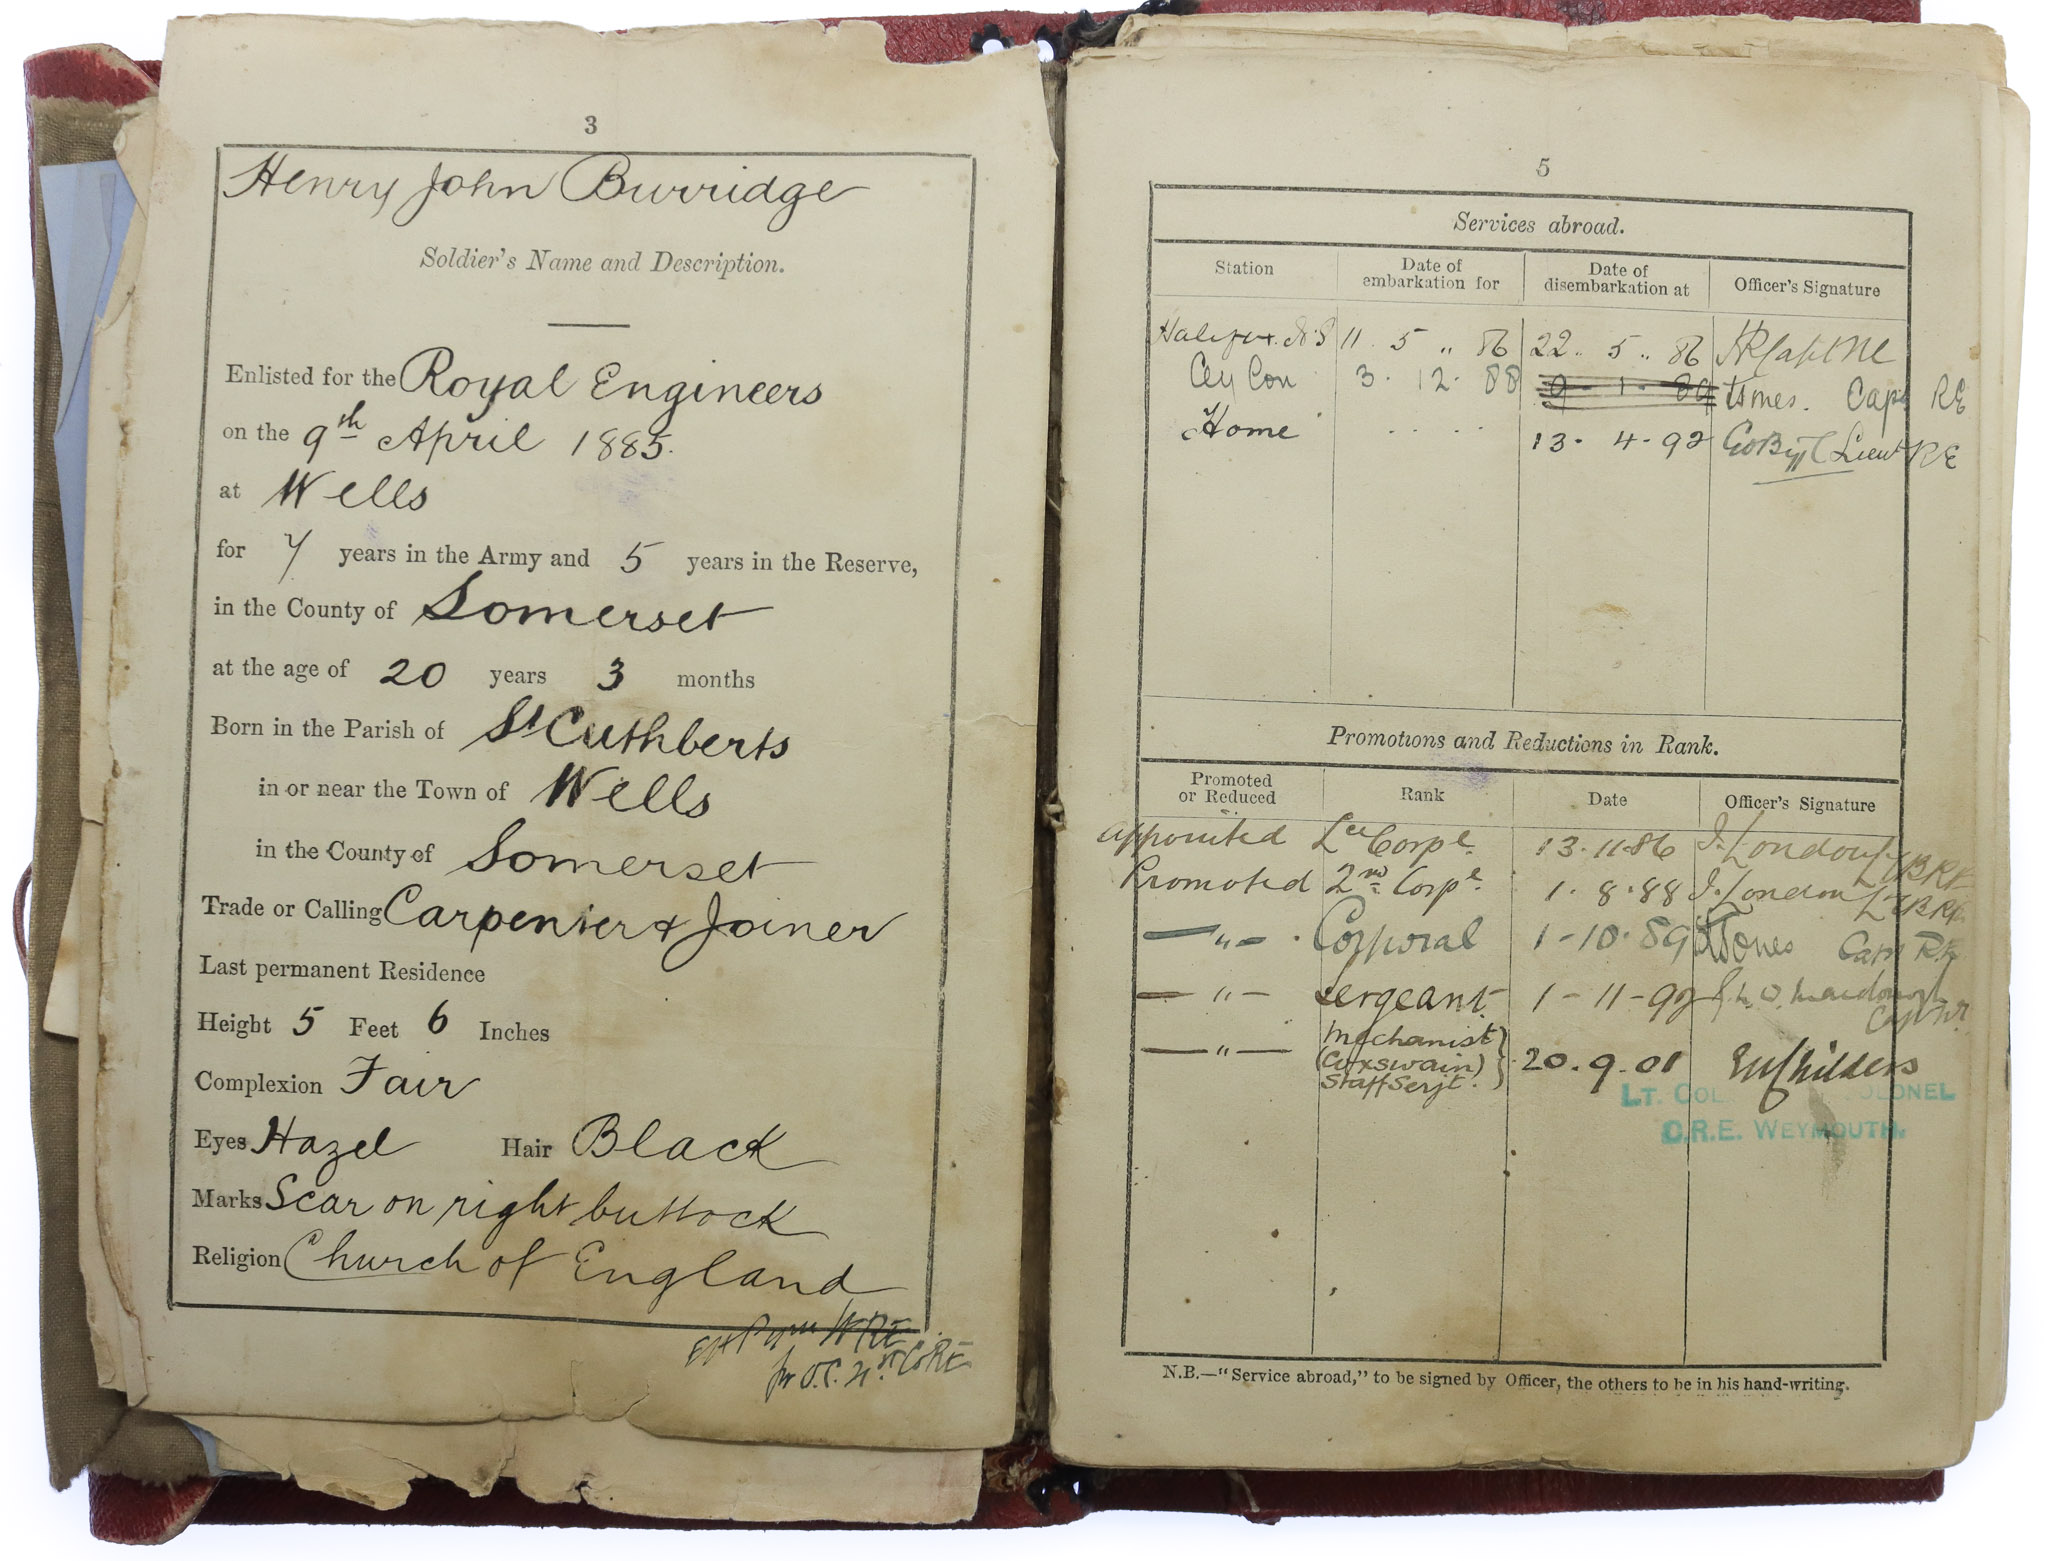 3
Henry John Burridge
Soldier's Name and Description.
Enlisted for the Royal Engineers
on the 9th April 1885.
at Wells
for 7 years in the Army and 5 years in the Reserve,
in the County of Somerset
at the age of 20 years 3 months
Born in the Parish of St Cuthberts
in or near the Town of Wells
in the County of Somerset
Trade or Calling Carpenter & Joiner
Last permanent Residence
Height 5 Feet 6 Inches
Complexion Fair
Eyes Hazel Hair Black
Marks Scar on right buttock
Religion Church of England
RE
for O.C. Co RE
5
Services abroad.
Station Date of embarkation for Date of disembarkation at Officer's Signature
Halifax. N.S 11 5 „ 86 22 „ 5 „ 86
Ceylon 3 . 12 . 88 9 - 1 - 89 Capt RE
Home . . . . 13 . 4 . 92 Lieut RE
Promotions and Reductions in Rank.
Promoted or Reduced Rank Date Officer's Signature
Appointed Lce Corpl. 13.11.86 J. London Lt RE
Promoted 2nd Corpl. 1 . 8 . 88 J. London Lt RE
— „ — . Corporal 1 - 10 . 89 Jones Capt RE
— „ — Sergeant 1 - 11 - 92
— „ — Mechanist (Coxswain) Staff Serjt. } 20 . 9 . 01 Childers
LT. COL COLONEL
C.R.E. WEYMOUTH.
N.B.—"Service abroad," to be signed by Officer, the others to be in his hand-writing.